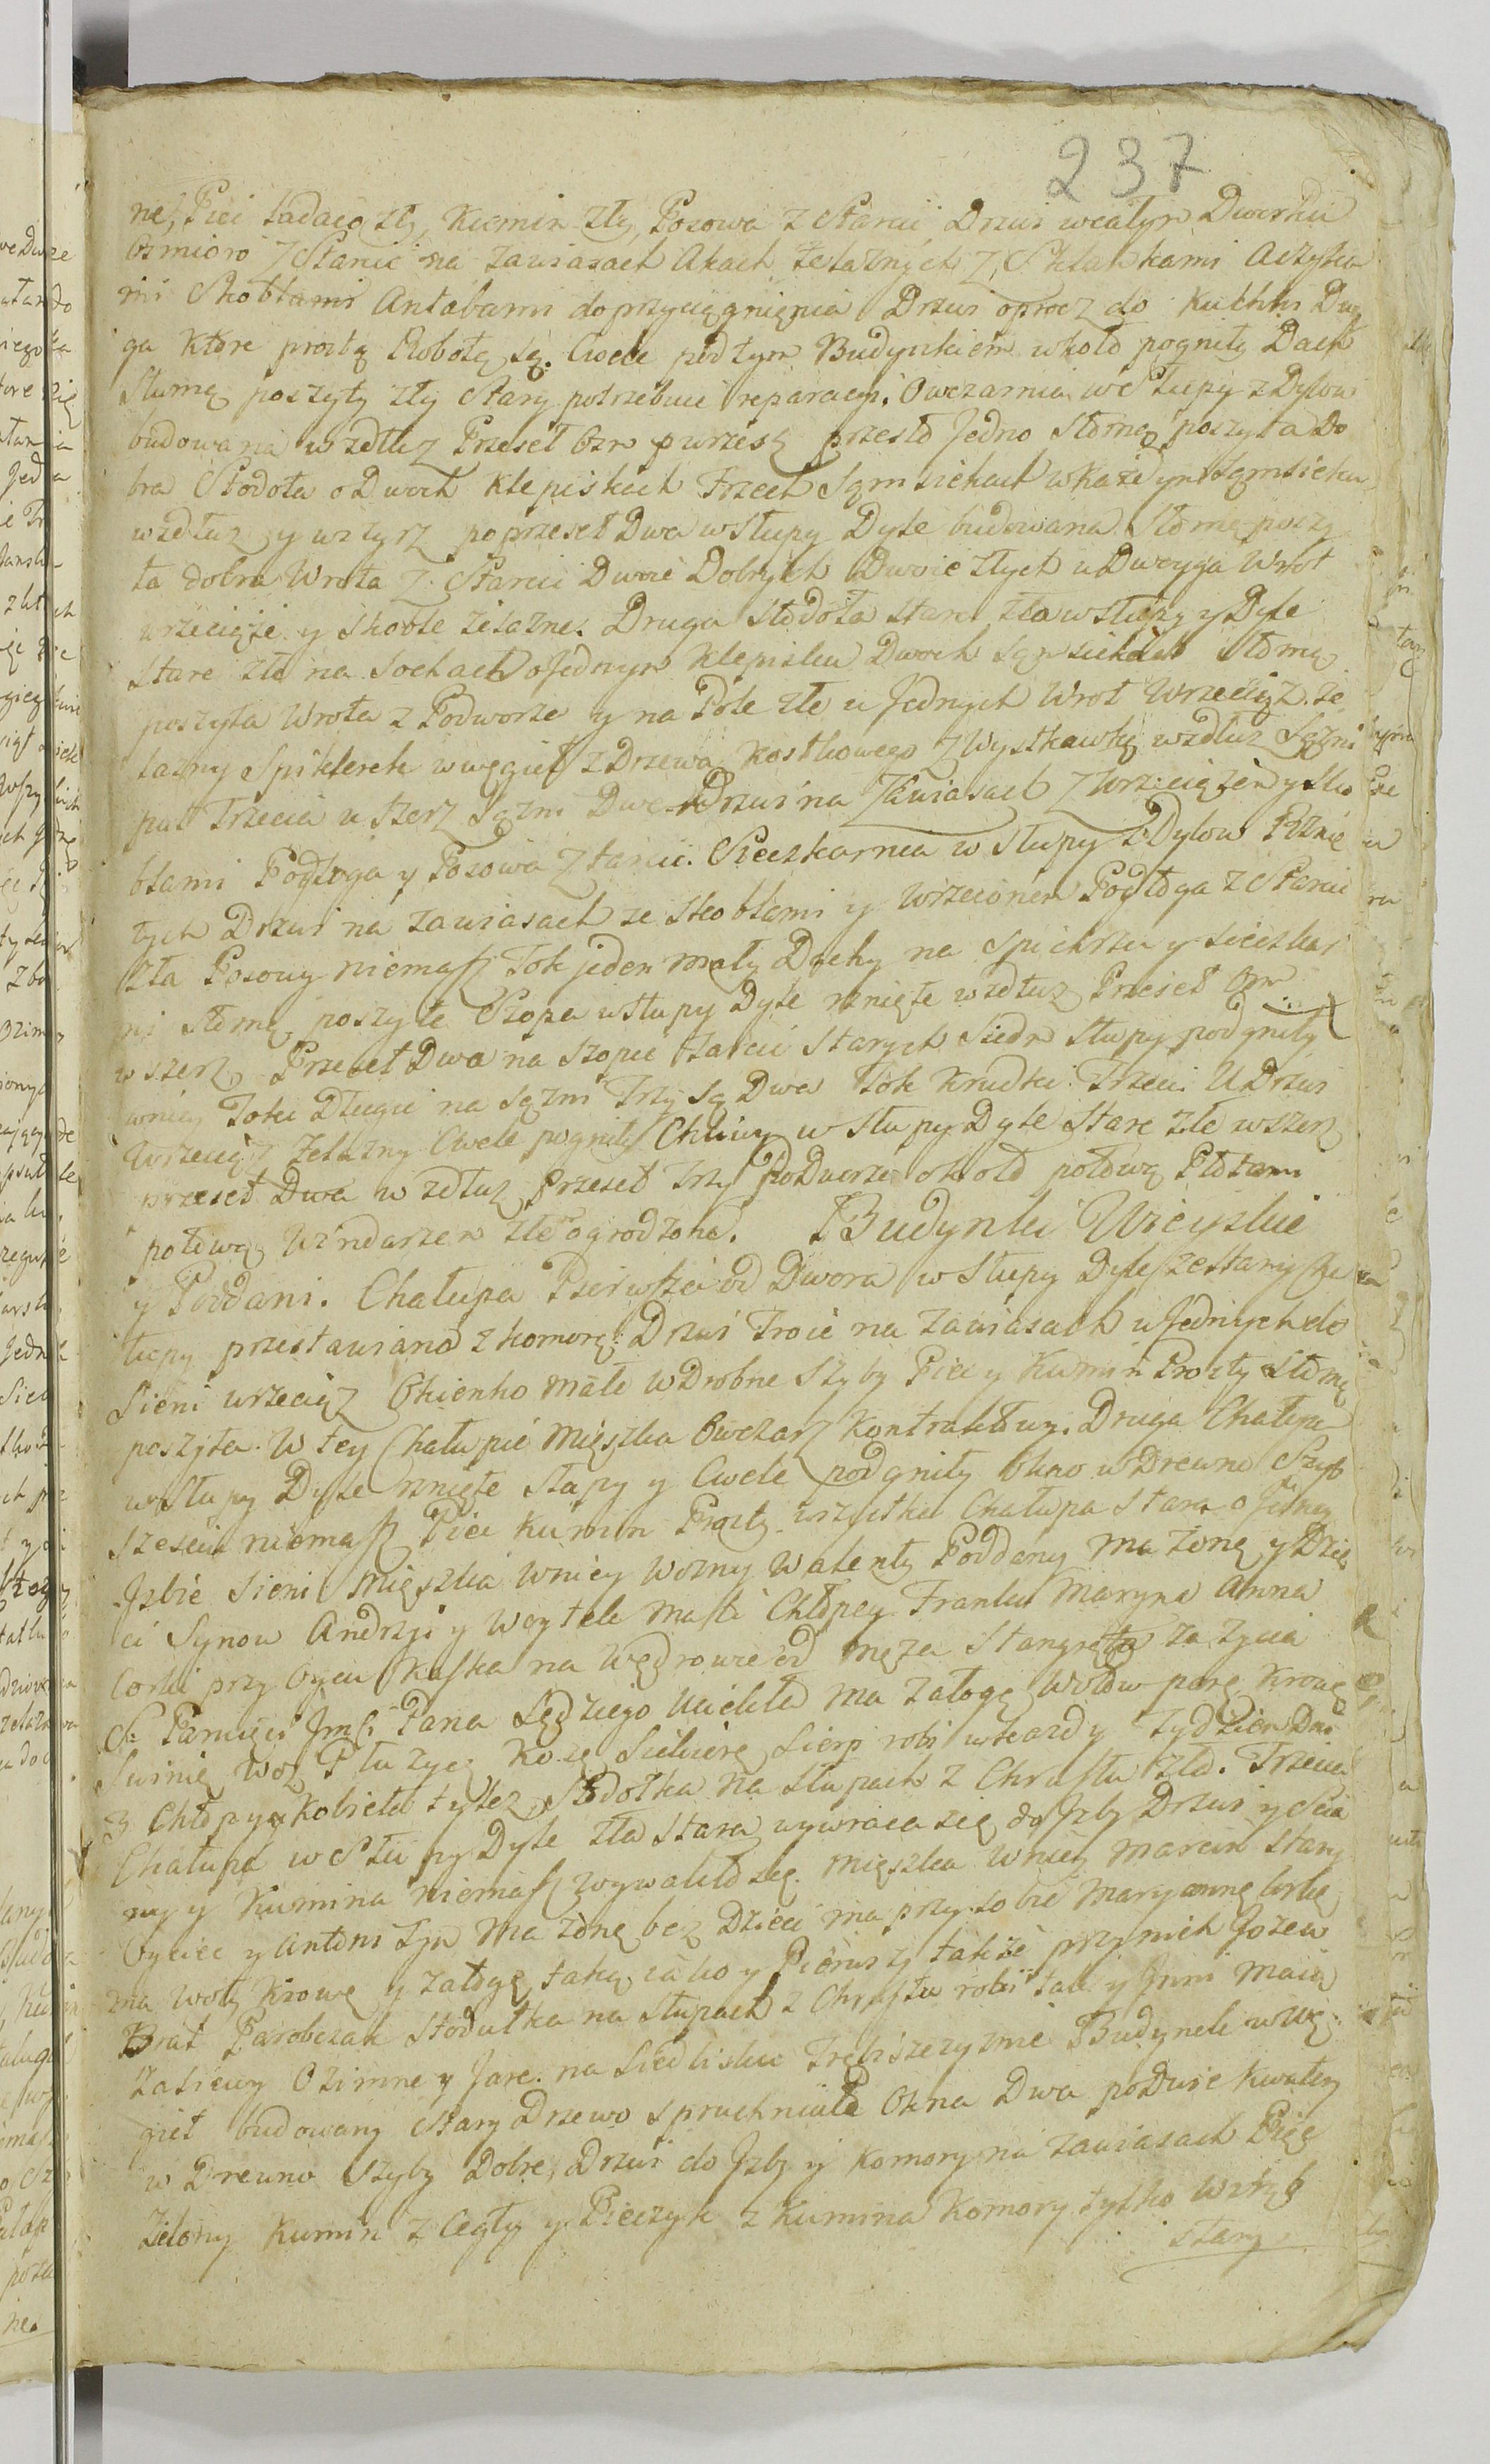 237
ne, Piec Kadaco zły, Kumin zły, Posowa z Starcić Drzwi wcałym Dworku
Ośmioro z Starcić na zawiasach Akach żelaznych z Klatkami Aczyka
mi Skoblami Antabami do przyciągnięnia Drzwi oprocz do Kuchni Dwo
ga które prostą Robotą są. Cwele pod tym Budynkiem wkoło pogniły Dach
Słomą poszyty zły Stary potrzebuie reparacyi. Owczarnia w Słupy z Dylow
budowana wzdłuz Przeseł Ośm pwrzesz przesło Jedno Słomą poszyta Do
bra Stodoła o Dwoch Klepiskach Trzech Sąmsiekach w Każdym Sąmsieku
wzdłuz y wszyrz po przeseł Dwa w Słupy Dyle budowana Słomą poszy
ta dobra Wrota z Starcic Dwoie Dobrych Dwoie złych u Dwoyga Wrot
wrzeciąże y Skoble żelazne. Druga Stodoła stara zła w Słupy y Dyle
stare złe na Sochach o Jednym Klepisku Dwoch Sąmsiekach Słomą
poszyta Wrota z Podworze y na Pole złe u Jednych Wrot Wrzeciąz że
lazny Spiklerek wwęgieł z Drzewa Kostkowego z Wystawką wzdłuz Sążni
puł Trzecia wszerz Sążni Dwa Drzwi na Zawiasach z Wrzeciążem y Sko
blami Podłoga y Posowa z tarcic. Sieczkarnia w Słupy z Dylow Rznię
tych Drzwi na zawiasach ze Skoblami y Wrzecionem Podłoga z Starcic
zła Posowy niemasz Tok jeden mały Dachy na Spiklrzu y Sieczkar
ni Słomą poszyte Szopa w Słupy Dyle rznięte wzdłuz Przeseł Ośm
wszerz Przeseł Dwa na szopie tarcic Starych Siedm Słupy podgniły
wniey Toki Długie na sążni Trzy są Dwa Tok Krudki Trzeci U Drzwi
Wrzeciąz żelazny Cwele pogniły Chliwy w Słupy Dyle Stare złe wszerz
przeseł Dwa wzdłuz Przeseł Trzy Podworze około połową Płotam
połową Windarzem złe ogrodzone. Budynki Wieyskie
y Poddani. Chałupa Pierwsza od Dwora w Słupy Dyle zestary Cha
łupy przestawiana z komorą Drzwi Troie na zawiasach u Jednych do
Sieni wrzeciąz Okienko małe w Drobne Szyby Piec y Kumin Prosty Słomą
poszyta. W tey Chałupie Mięszka Owczarz Kontraktowy. Druga Chałupa
w Słupy Dyle rznięte Słupy y Cwele podgniły Okno w Drewno Szyb
szesciu niemasz Piec Kumin Prosty wszytka Chałupa Stara o Jedney
Jzbie Sieni Mięszka wniey Wozny Walenty Poddany Ma Żonę y Dzie
ci Synow Andrzji y Woytek Małi Chłopcy Franka Maryna Anna
Corki przy Oycu Kaska na Wędrowie od męza Stangreta za życia
S. Pamięci Jmści Pana Sędziego uciekła Ma załogę Wołow parę Krowę
Swinię Woz Płuzycę Kosę Siekierę Sierp robi wkazdy Tydzien Dni
3 Chłopy y Kobieta tylez Stodołka na Słupach z Chrustu zła. Trzecia
Chałupa w Słupy Dyle zła Stara wywraca się do Jzby Drzwi y Scia
ny y Kumina niemasz wywalił się. Mięszka wniey Marcin Stary
Oyciec y Antoni Syn Ma Żonę bez Dzieci ma przy sobie Maryannę Corkę
ma woły Krowę y załogę taką iako y Pierwszy takze przynich Jozew
Brat Parobczak Stodułka na Słupach z Chrustu robi tak y Jnni Maią
Zasiewy Ozimne y Jare. na Siedlisku Trębiszczyznie Budynek w Wę
gieł budowany Stary Drzewo spruchniałe Okna Dwa po Dwie Kwatery
w Drewno Szyby Dobre, Drzwi do Jzby y Komory na zawiasach Piec
Zielony Kumin z Cegły y Pieczyk z Kumina Komory tylko Wstyd
Stary